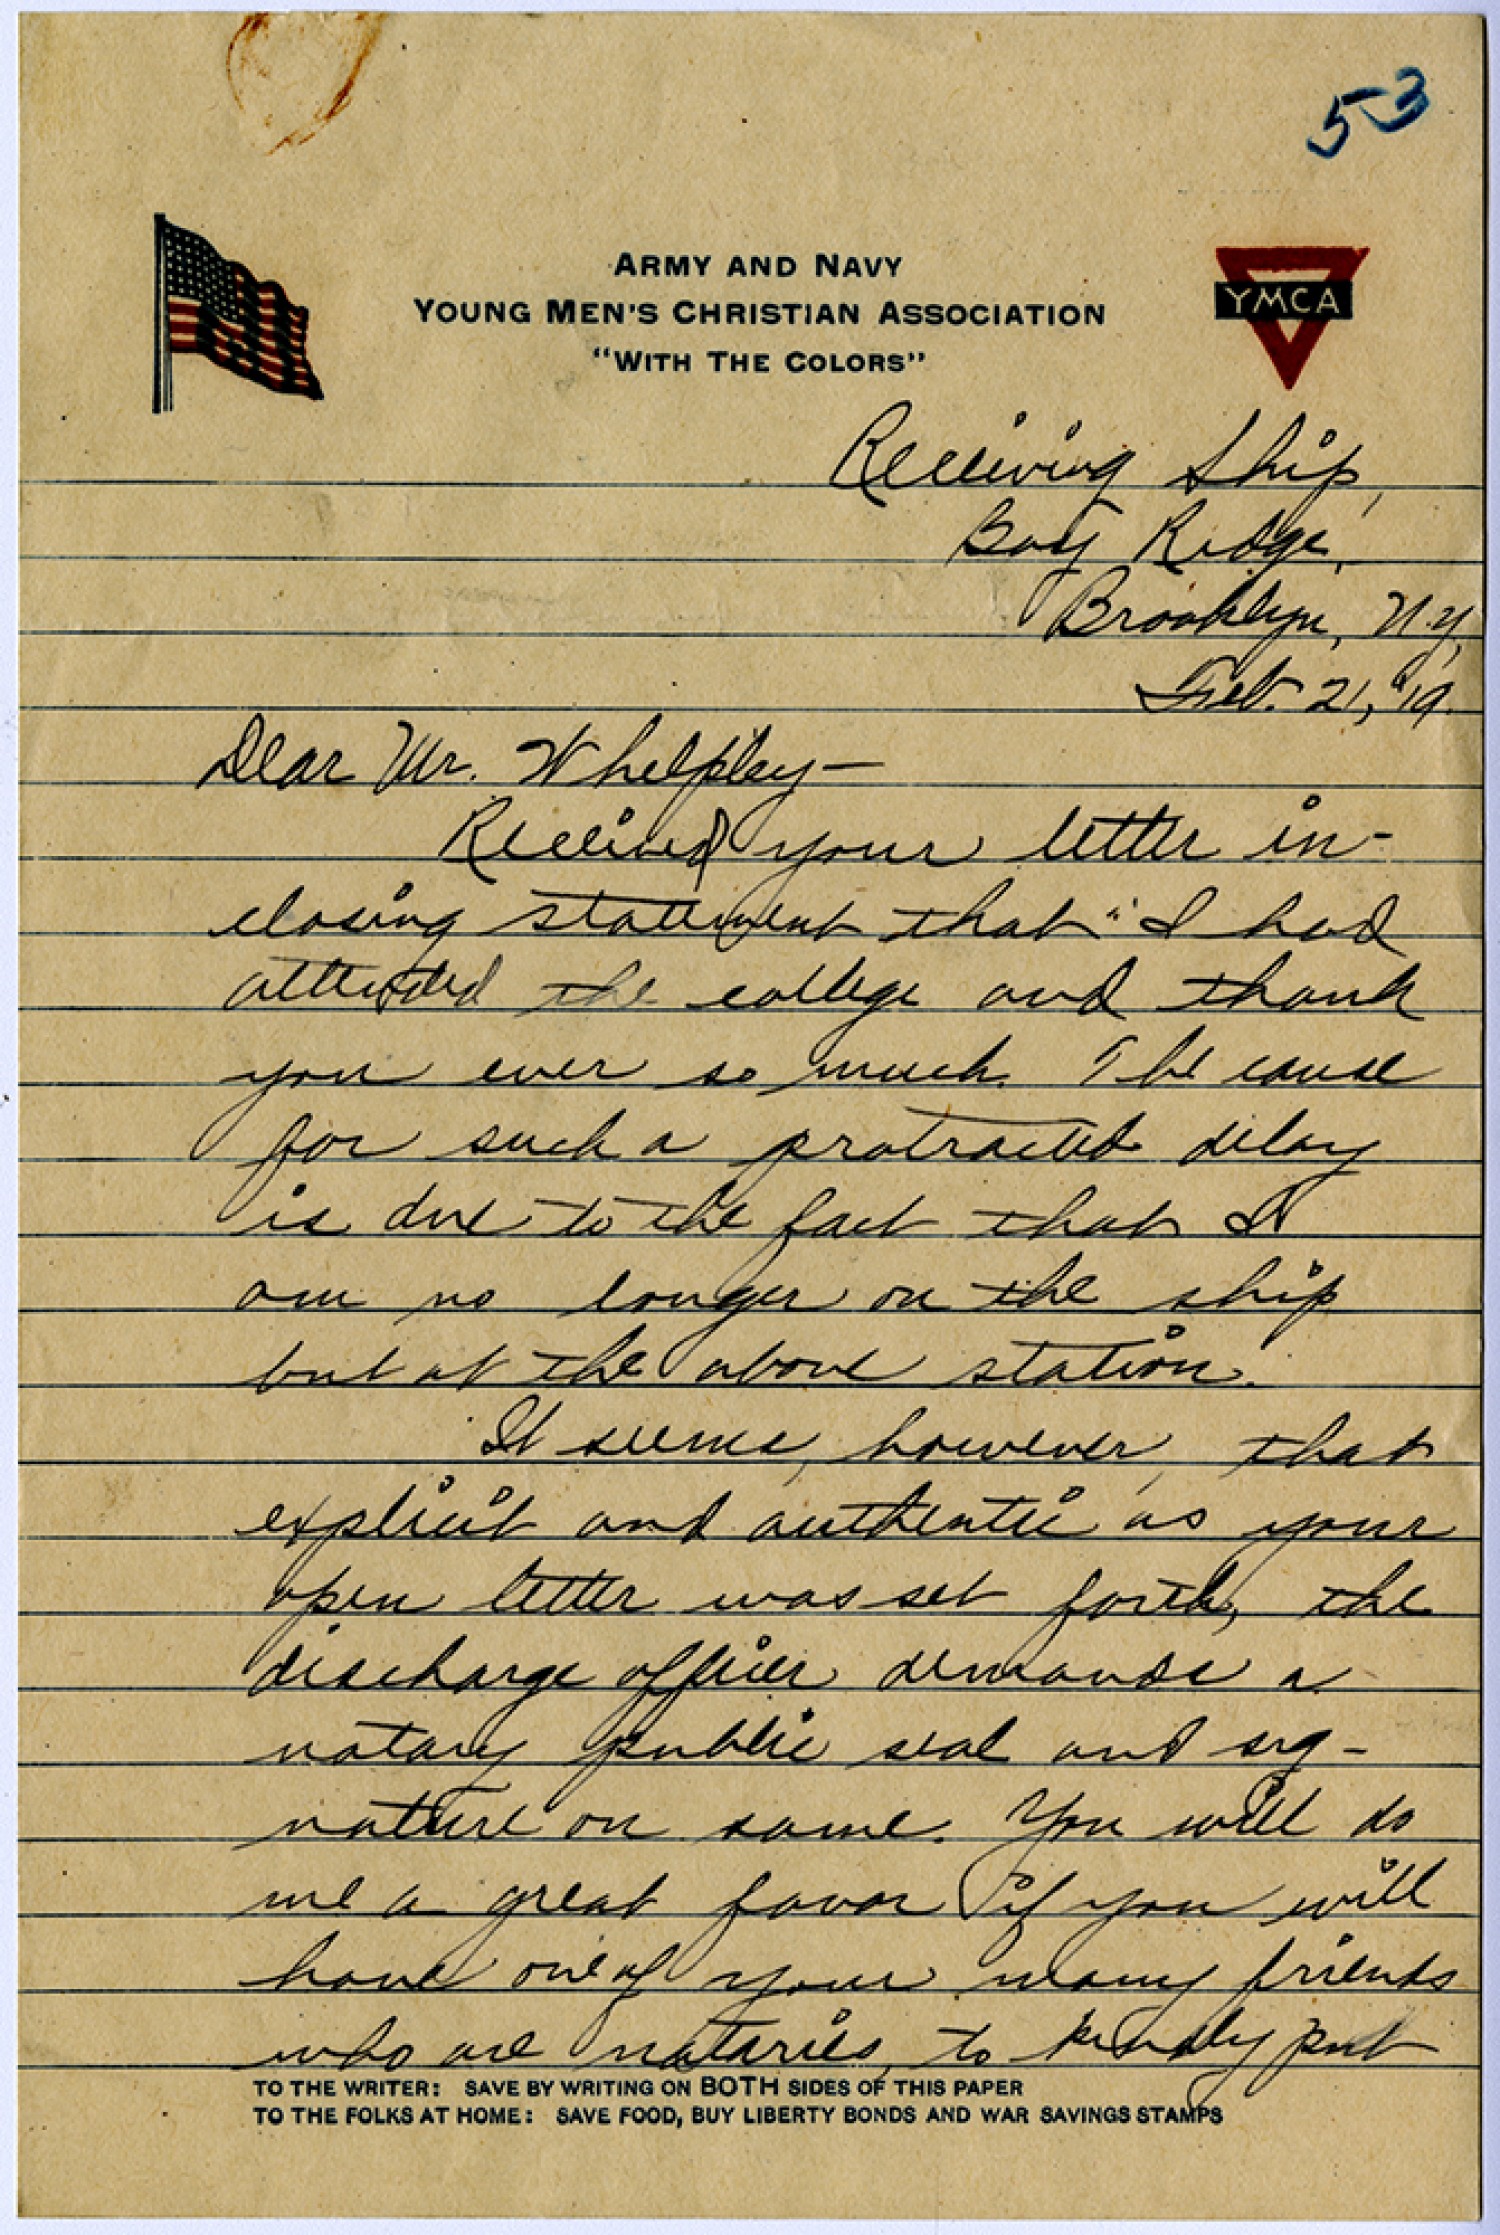 53
ARMY AND NAVY
YOUNG MEN'S CHRISTIAN ASSOCIATION
"WITH THE COLORS"
YMCA
Receiving Ship,
Bay Ridge,
Brooklyn, N.Y,
Feb. 21, "19.
Dear Mr. Whelpley—
Received your letter in-
closing statement that "I had
attended the college and thank
you ever so much. The cause
for such a protracted delay
is due to the fact that I
am no longer on the ship
but at the above station.
It seems, however, that
explicit and authentic as your
open letter was set forth, the
discharge officer demands a
notary public seal and sig-
nature on same. You will do
me a great favor if you will
have one of your many friends
who are notaries, to kindly put
TO THE WRITER: SAVE BY WRITING ON BOTH SIDES OF THIS PAPER
TO THE FOLKS AT HOME: SAVE FOOD, BUY LIBERTY BONDS AND WAR SAVINGS STAMPS